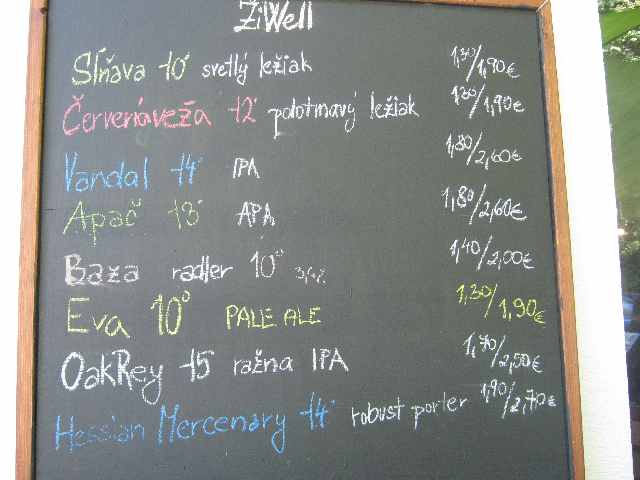 ŽiWell
Sĺňava 10° svetlý ležiak 1,30/1,90€
Červenáveža 12° polotmavý ležiak 1,30/1,90€
Vandal 14° IPA 1,80/2,60€
Apač 13° APA 1,80/2,60€
Baza radler 10° 3,4% 1,40/2,00€
Eva 10° PALE ALE 1,30/1,90€
OakRey 15 ražna IPA 1,70/2,50€
Hessian Mercenary 14° robust porter 1,90/2,70€